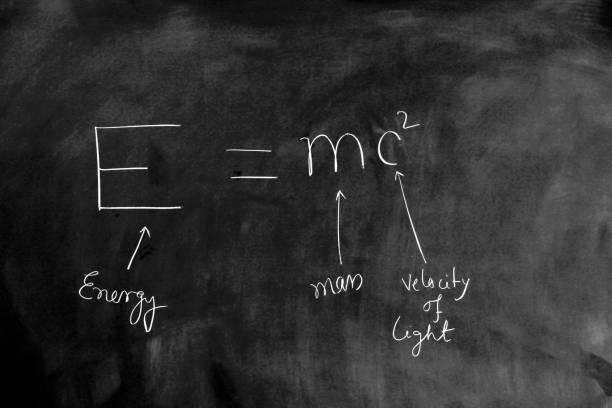 E = mc²
Energy
mass
velocity
of
light